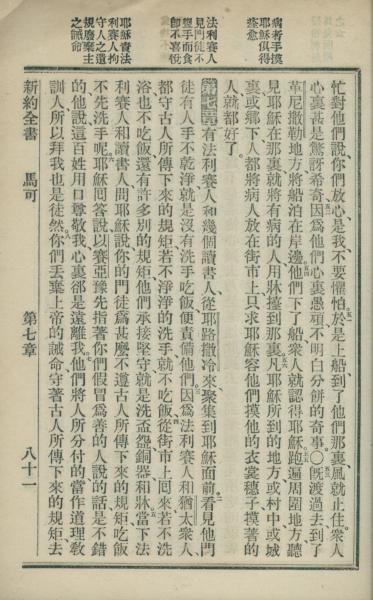 病者手摸
耶穌俱得
痊愈
法利賽人
見門徒不
盥手而食
卽不喜悅
耶穌責法
利賽人拘
守人之遺
規廢棄主
之誡命
忙對他們說你們放心是我不要懼怕五一於是上船到了他們那裏風就止住衆人
心裏甚是驚訝希奇五二因爲他們心裏愚頑不明白分餅的奇事〇五三旣渡過去到了
革尼撒勒地方將船泊在岸邊五四他們下了船衆人就認得耶穌五五跑遍周圍地方聽
見耶穌在那裏就將有病的人用牀擡到那裏五六凡耶穌所到的地方或村中或城
裏或鄉下人都將病人放在街市上只求耶穌容他們摸他的衣裳繸子摸著的
人就都好了
第七章一有法利賽人和幾個讀書人從耶路撒冷來聚集到耶穌面前二看見他門
徒有人手不乾淨就是沒有洗手吃飯便責備他們三因爲法利賽人和猶太衆人
都守古人所傳下來的規矩若不淨淨的洗手就不吃飯四從街市上囘來若不洗
浴也不吃飯還有許多別的規矩他們承接堅守就是洗盃盌銅器和牀五當下法
利賽人和讀書人問耶穌說你的門徒爲甚麽不遵古人所傳下來的規矩吃飯
不先洗手呢六耶穌回答說以賽亞豫先指著你們假冒爲善的人說的話是不錯
的他說這百姓用口尊敬我心裏卻是遠離我七他們將人所分付的當作道理教
訓人所以拜我也是徒然八你們丟棄上帝的誡命守著古人所傳下來的規矩去
新約全書
馬可
第七章
八十一